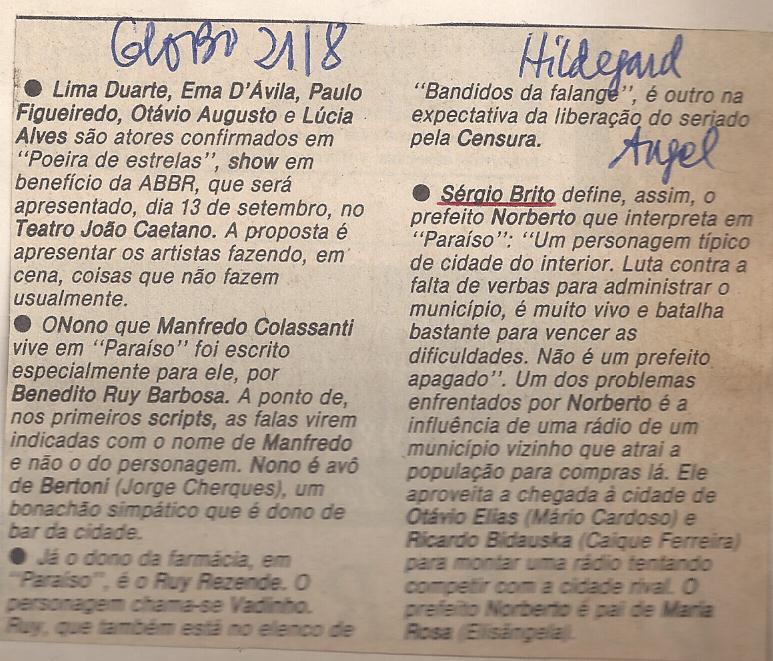 GLOBO 21/8
● Lima Duarte, Ema D'Ávila, Paulo
Figueiredo, Otávio Augusto e Lúcia
Alves são atores confirmados em
"Poeira de estrelas", show em
benefício da ABBR, que será
apresentado, dia 13 de setembro, no
Teatro João Caetano. A proposta é
apresentar os artistas fazendo, em
cena, coisas que não fazem
usualmente.
● ONono que Manfredo Colassanti
vive em "Paraíso" foi escrito
especialmente para ele, por
Benedito Ruy Barbosa. A ponto de,
nos primeiros scripts, as falas virem
indicadas com o nome de Manfredo
e não o do personagem. Nono é avô
de Bertoni (Jorge Cherques), um
bonachão simpático que é dono de
bar da cidade.
● Já o dono da farmácia, em
"Paraíso", é o Ruy Rezende. O
personagem chama-se Vadinho.
Ruy, que também está no elenco de
Hildegard
"Bandidos da falange", é outro na
expectativa da liberação do seriado
pela Censura.
Angel
● Sérgio Brito define, assim, o
prefeito Norberto que interpreta em
"Paraíso": "Um personagem típico
de cidade do interior. Luta contra a
falta de verbas para administrar o
município, é muito vivo e batalha
bastante para vencer as
dificuldades. Não é um prefeito
apagado". Um dos problemas
enfrentados por Norberto é a
influência de uma rádio de um
município vizinho que atrai a
população para compras lá. Ele
aproveita a chegada à cidade de
Otávio Elias (Mário Cardoso) e
Ricardo Bidauska (Caique Ferreira)
para montar uma rádio tentando
competir com a cidade rival. O
prefeito Norberto é pai de Maria
Rosa (Elisângela).